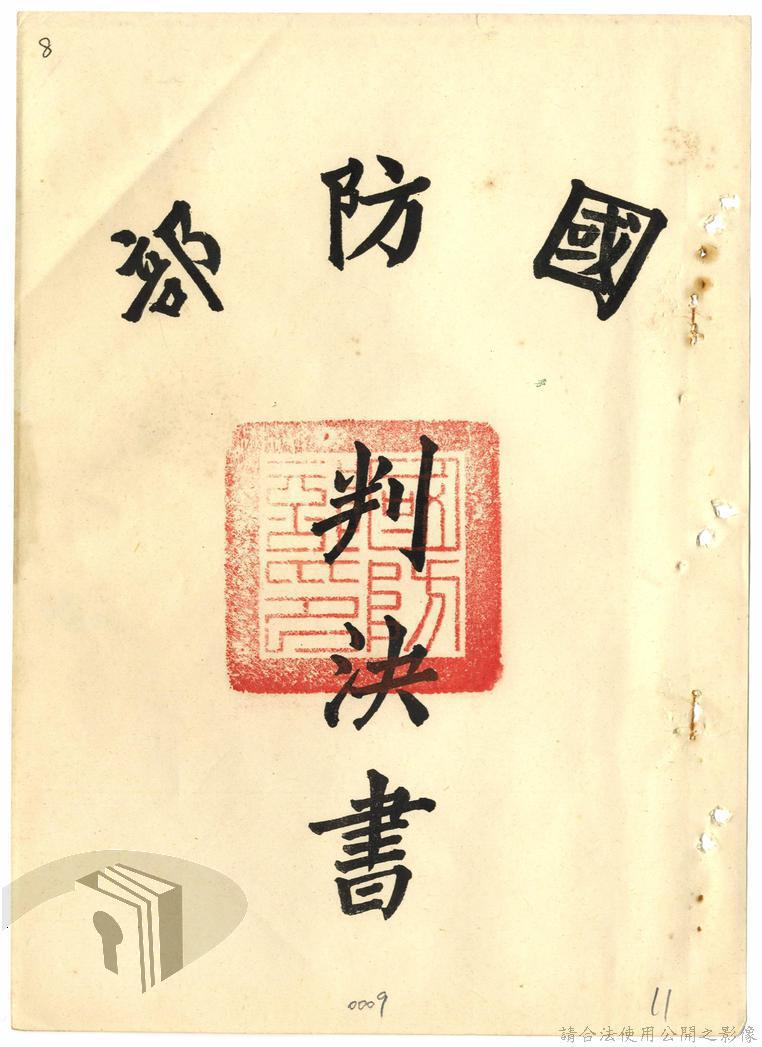 8
國防部
國防部印
判決書
0009
11
請合法使用公開之影像